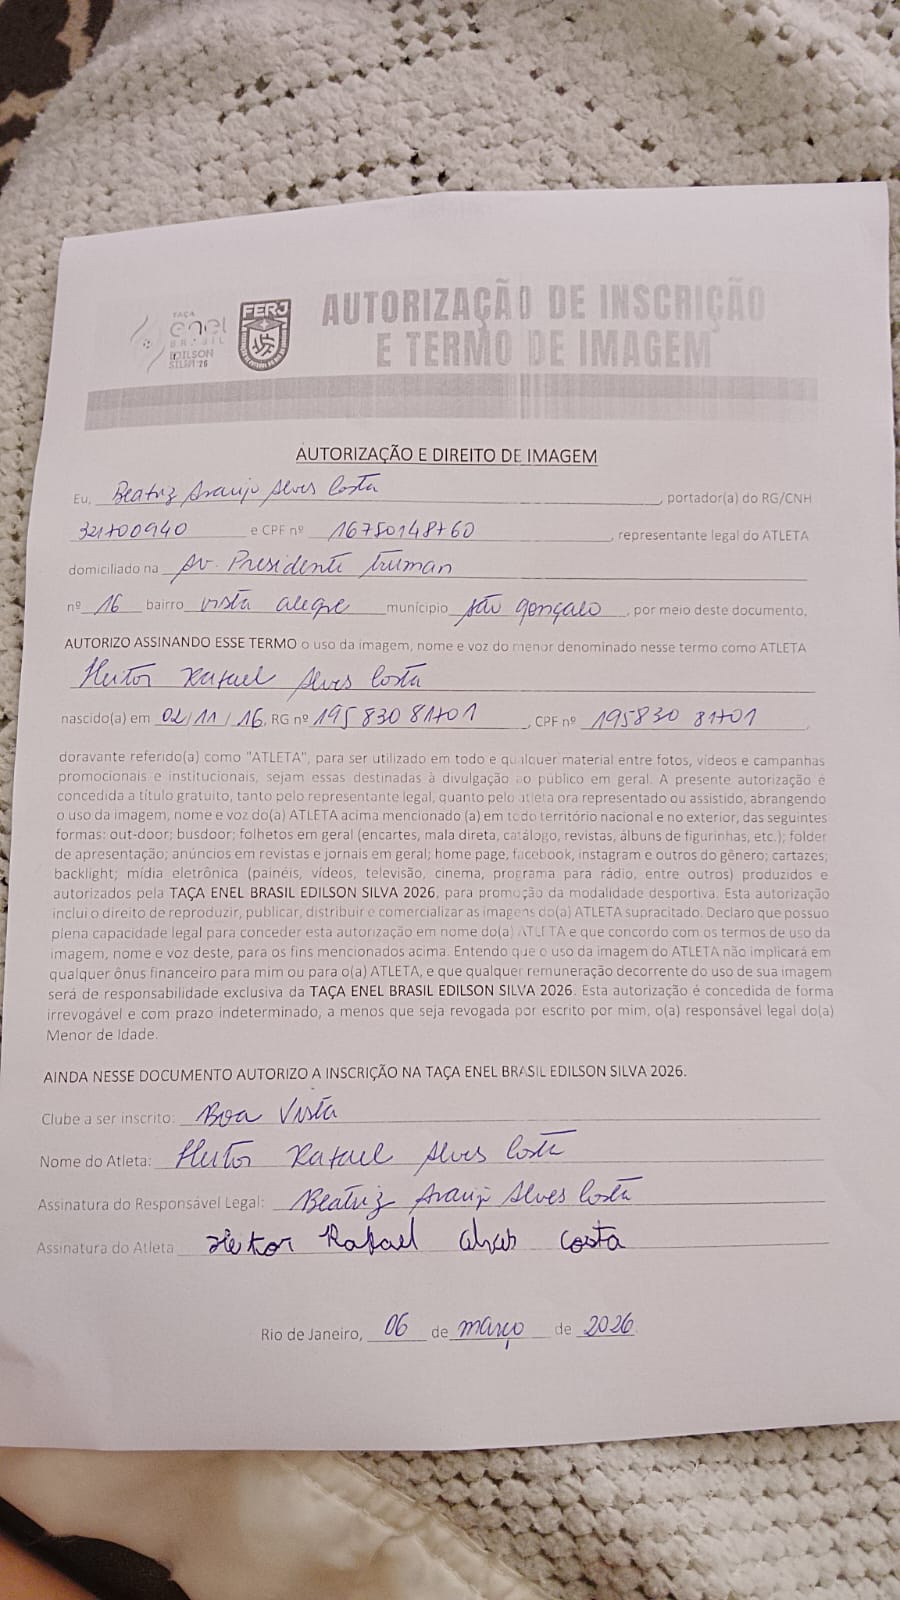 TAÇA
enel
BRASIL
EDILSON
SILVA '26
FERJ
AUTORIZAÇÃO DE INSCRIÇÃO
E TERMO DE IMAGEM
AUTORIZAÇÃO E DIREITO DE IMAGEM
Eu, Beatriz Araujo Alves Costa, portador(a) do RG/CNH
321700940 e CPF nº 16750148760, representante legal do ATLETA
domiciliado na Av. Presidente Truman
nº 16 bairro vista alegre município são gonçalo, por meio deste documento,
AUTORIZO ASSINANDO ESSE TERMO o uso da imagem, nome e voz do menor denominado nesse termo como ATLETA
Heitor Rafael Alves Costa
nascido(a) em 02/11/16, RG nº 195 830 817 01, CPF nº 195830 817 01
doravante referido(a) como "ATLETA", para ser utilizado em todo e qualquer material entre fotos, vídeos e campanhas
promocionais e institucionais, sejam essas destinadas à divulgação ao público em geral. A presente autorização é
concedida a título gratuito, tanto pelo representante legal, quanto pelo atleta ora representado ou assistido, abrangendo
o uso da imagem, nome e voz do(a) ATLETA acima mencionado (a) em todo território nacional e no exterior, das seguintes
formas: out-door; busdoor; folhetos em geral (encartes, mala direta, catálogo, revistas, álbuns de figurinhas, etc.); folder
de apresentação; anúncios em revistas e jornais em geral; home page, facebook, instagram e outros do gênero; cartazes;
backlight; mídia eletrônica (painéis, vídeos, televisão, cinema, programa para rádio, entre outros) produzidos e
autorizados pela TAÇA ENEL BRASIL EDILSON SILVA 2026, para promoção da modalidade desportiva. Esta autorização
inclui o direito de reproduzir, publicar, distribuir e comercializar as imagens do(a) ATLETA supracitado. Declaro que possuo
plena capacidade legal para conceder esta autorização em nome do(a) ATLETA e que concordo com os termos de uso da
imagem, nome e voz deste, para os fins mencionados acima. Entendo que o uso da imagem do ATLETA não implicará em
qualquer ônus financeiro para mim ou para o(a) ATLETA, e que qualquer remuneração decorrente do uso de sua imagem
será de responsabilidade exclusiva da TAÇA ENEL BRASIL EDILSON SILVA 2026. Esta autorização é concedida de forma
irrevogável e com prazo indeterminado, a menos que seja revogada por escrito por mim, o(a) responsável legal do(a)
Menor de Idade.
AINDA NESSE DOCUMENTO AUTORIZO A INSCRIÇÃO NA TAÇA ENEL BRASIL EDILSON SILVA 2026.
Clube a ser inscrito: Boa Vista
Nome do Atleta: Heitor Rafael Alves Costa
Assinatura do Responsável Legal: Beatriz Araujo Alves Costa
Assinatura do Atleta Heitor Rafael Alves Costa
Rio de Janeiro, 06 de março de 2026